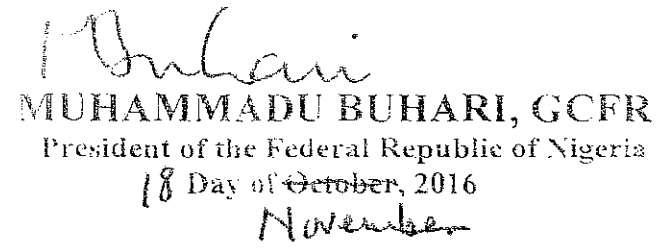 MBuhari
MUHAMMADU BUHARI, GCFR
President of the Federal Republic of Nigeria
18 Day of October, 2016
November